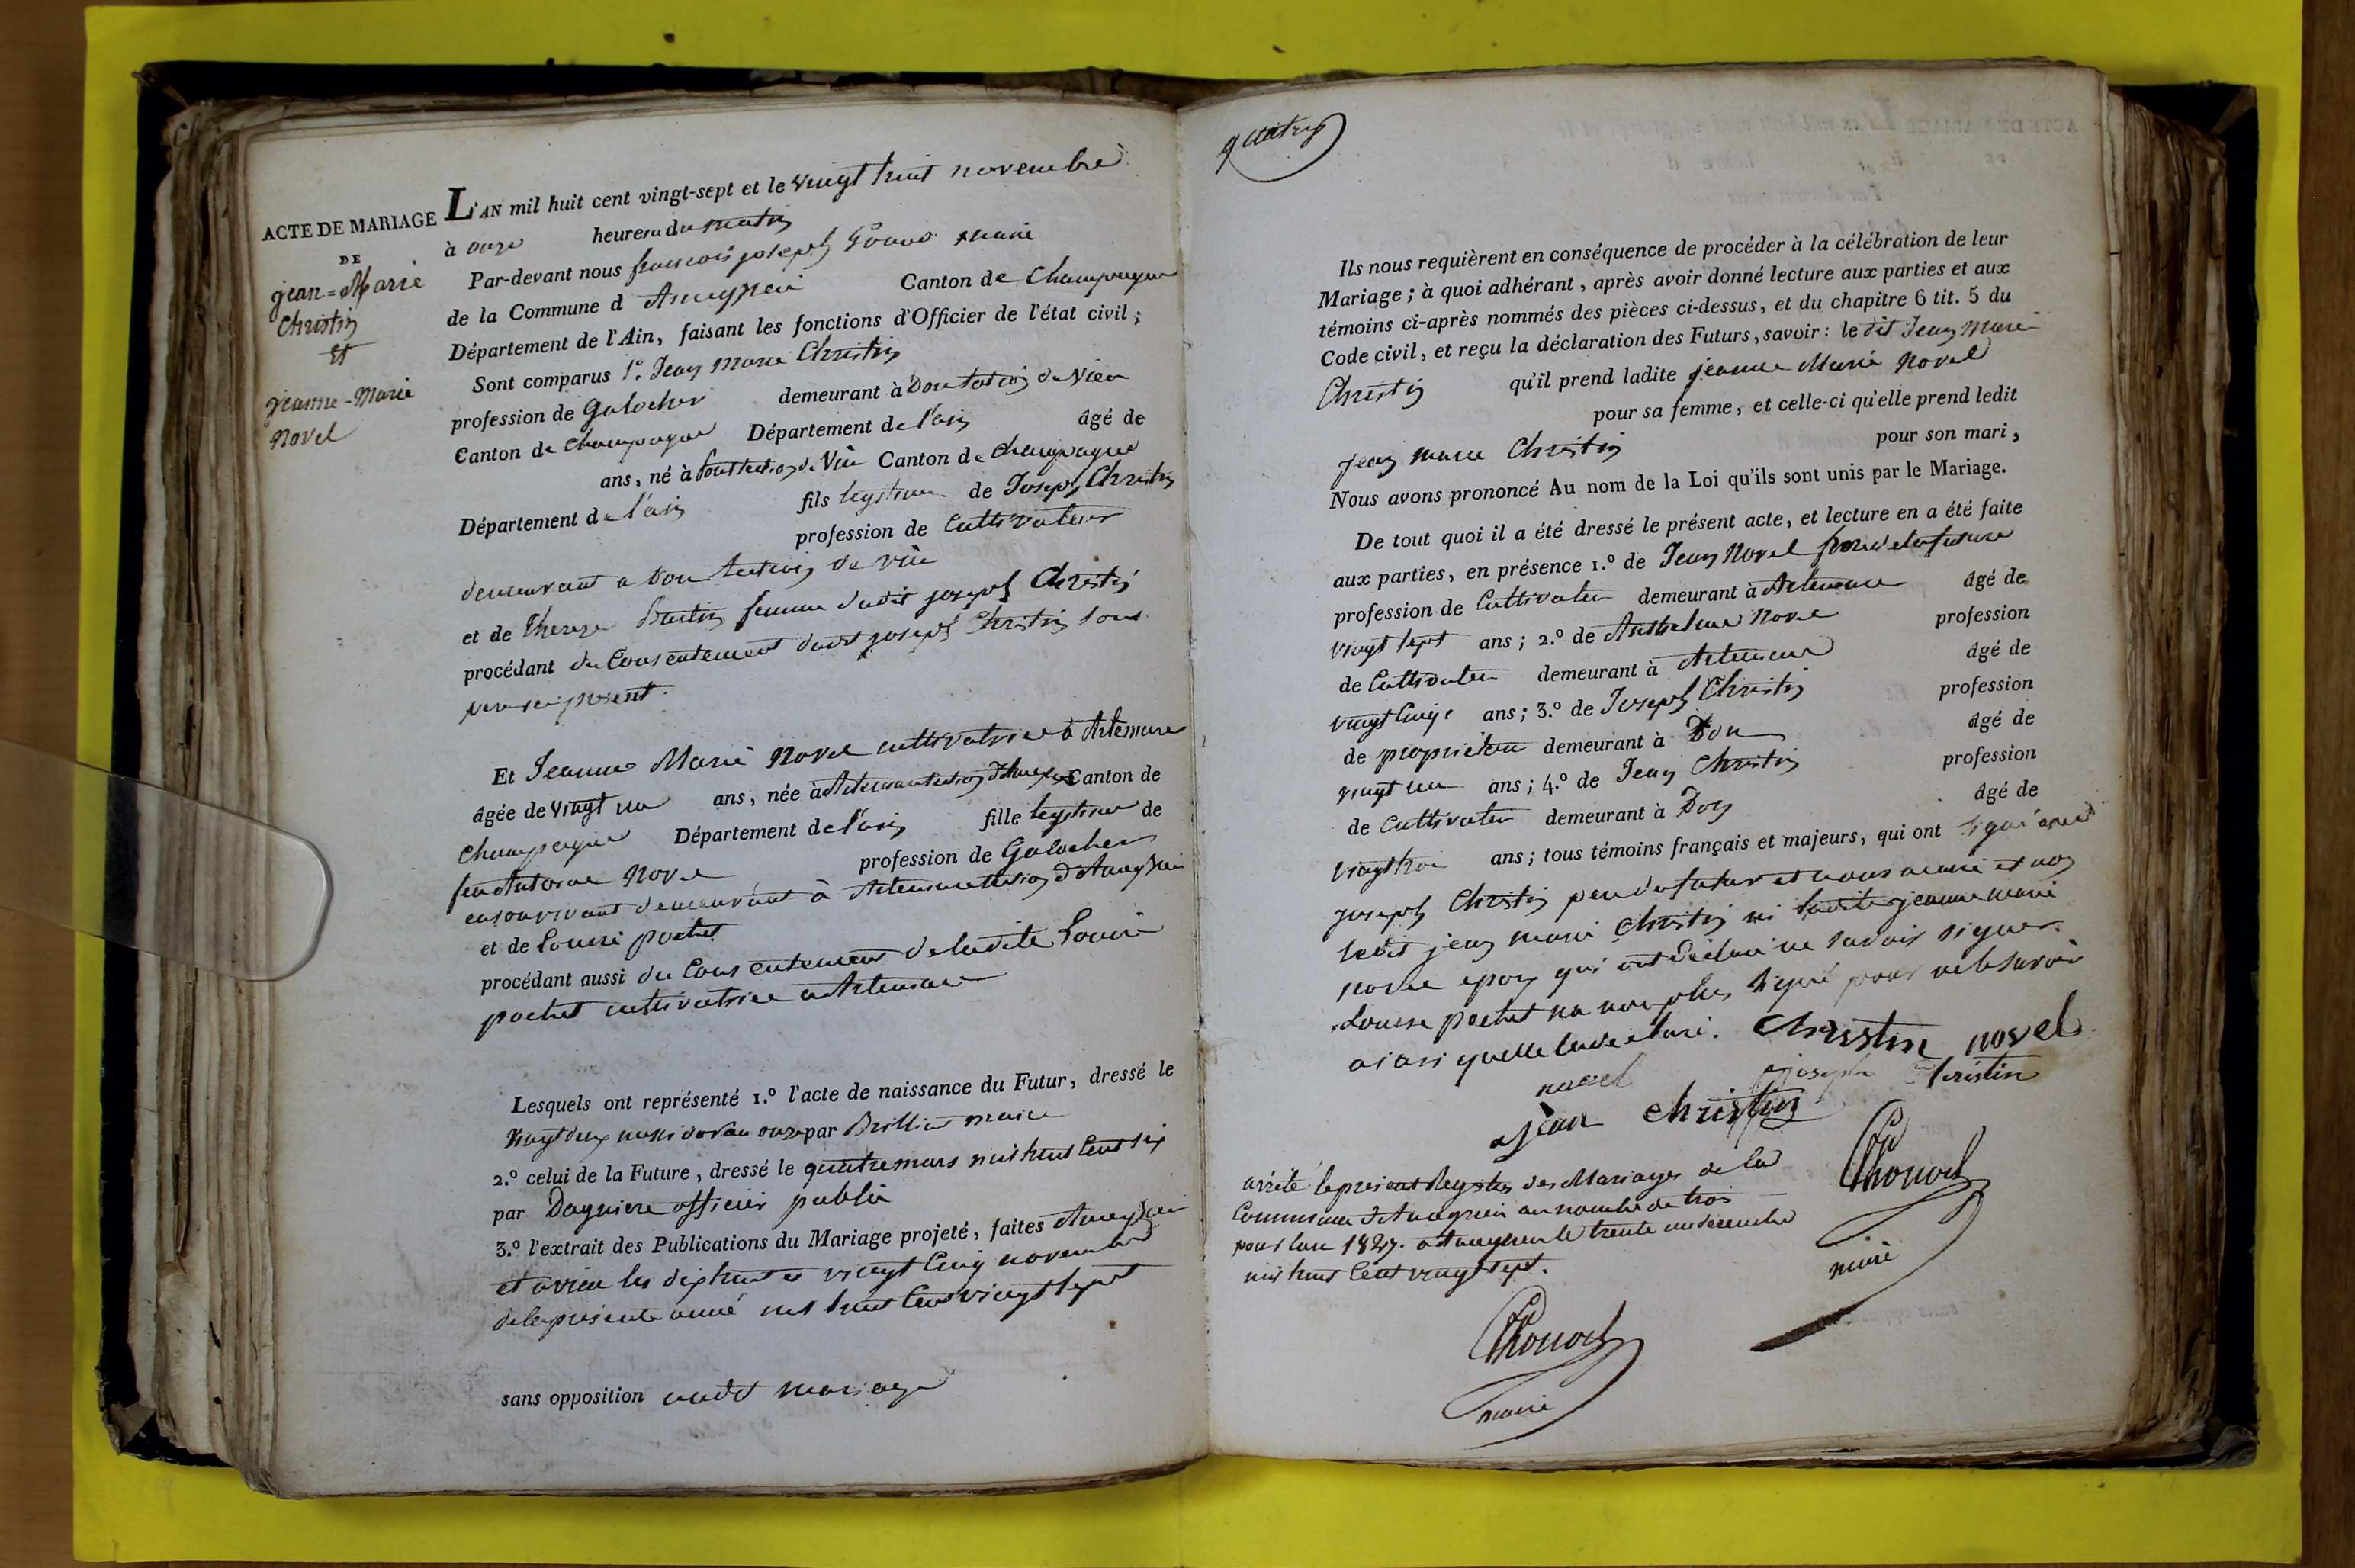 ACTE DE MARIAGE
DE
jean=Marie
Christin
Et
jeanne-Marie
Novel
L'AN mil huit cent vingt-sept et le vingt huit novembre
à onze heures du matin
Par-devant nous françois joseph maire
de la Commune d'Ameyzieu Canton de Champagne
Département de l'Ain, faisant les fonctions d'Officier de l'état civil;
Sont comparus 1.º Jean Marie Christin
profession de Galocher demeurant à Don de Vieu
Canton de Champagne Département de l'ain âgé de
ans, né à de Vieu Canton de Champagne
Département de l'ain fils legitime de Joseph Christin
profession de Cultivateur
demeurant a Don de vieu
et de Thereze femme dudit joseph Christin
procédant du Consentement dudit joseph Christin son
pere ici present.
Et Jeanne Marie Novel cultivatrice à Artemare
âgée de vingt un ans, née à Artemare Canton de
Champagne Département de l'ain fille legitime de
feu Antoine Novel profession de Galocher
en son vivant demeurant à Artemare d'Ameyzieu
et de Louise pochet
procédant aussi du Consentement de ladite Louise
pochet cultivatrice a Artemare
Lesquels ont représenté 1.º l'acte de naissance du Futur, dressé le
vingt deux messidor an onze par Brillat maire
2.º celui de la Future, dressé le quatre mars mil huit Cent six
par officier public
3.º l'extrait des Publications du Mariage projeté, faites Ameyzieu
et a vieu les dix huit et vingt Cinq novembre
de la presente année mil huit Cent vingt sept
sans opposition audit mariage
quatre
Ils nous requièrent en conséquence de procéder à la célébration de leur
Mariage; à quoi adhérant, après avoir donné lecture aux parties et aux
témoins ci-après nommés des pièces ci-dessus, et du chapitre 6 tit. 5 du
Code civil, et reçu la déclaration des Futurs, savoir: le dit Jean Marie
Christin qu'il prend ladite jeanne Marie Novel
pour sa femme, et celle-ci qu'elle prend ledit
jean marie Christin pour son mari,
Nous avons prononcé Au nom de la Loi qu'ils sont unis par le Mariage.
De tout quoi il a été dressé le présent acte, et lecture en a été faite
aux parties, en présence 1.º de Jean Novel frere de la future
profession de Cultivateur demeurant à Artemare âgé de
vingt sept ans; 2.º de Anthelme Novel profession
de Cultivateur demeurant à Artemare âgé de
vingt Cinq ans; 3.º de Joseph Christin profession
de proprietaire demeurant à Don âgé de
vingt un ans; 4.º de Jean Christin profession
de Cultivateur demeurant à Don âgé de
vingt trois ans; tous témoins français et majeurs, qui ont signé avec
joseph Christin pere du futur et nous maire et non
ledit jean marie Christin ni ladite jeanne marie
novel epoux qui ont déclaré ne savoir signer.
Louise pochet na non plus signé pour ne le savoir
ainsi quelle la déclaré. Christin novel
novel joseph Christin
jean christin
Thonod
maire
arrêté le present Registre des Mariages de la
Commune d'Ameyzieu au nombre de trois
pour l'an 1827. a Ameyzieu le trente un decembre
mil huit Cent vingt sept.
Thonod
maire